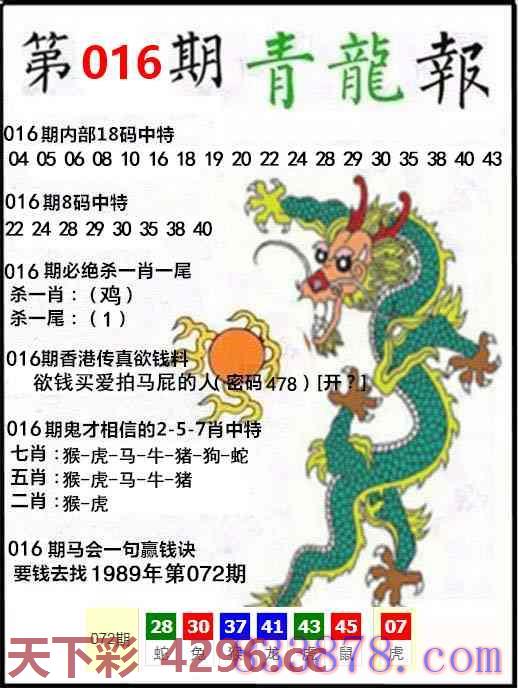 第016期青龍報
016期内部18码中特
04 05 06 08 10 16 18 19 20 22 24 28 29 30 35 38 40 43
016期8码中特
22 24 28 29 30 35 38 40
016期必绝杀一肖一尾
杀一肖：（鸡）
杀一尾：（1）
016期香港传真欲钱料
欲钱买爱拍马屁的人（密码478）[开？]
016期鬼才相信的2-5-7肖中特
七肖：猴-虎-马-牛-猪-狗-蛇
五肖：猴-虎-马-牛-猪
二肖：猴-虎
016期马会一句赢钱诀
要钱去找1989年第072期
072期 28 30 37 41 43 45 07
蛇 兔 猴 龙 虎 鼠 虎
天下彩 4296.cc
3878.com